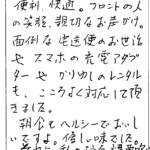 便利、快適。フロントの人
の笑顔、親切なお声がけ。
面倒な宅送便のお世話
や、スマホの充電アダプ
ターや、かりゆしのレンタル
も、こころよく対応して頂
きました。
朝食もヘルシーでおいし
いです。優しい味でした。